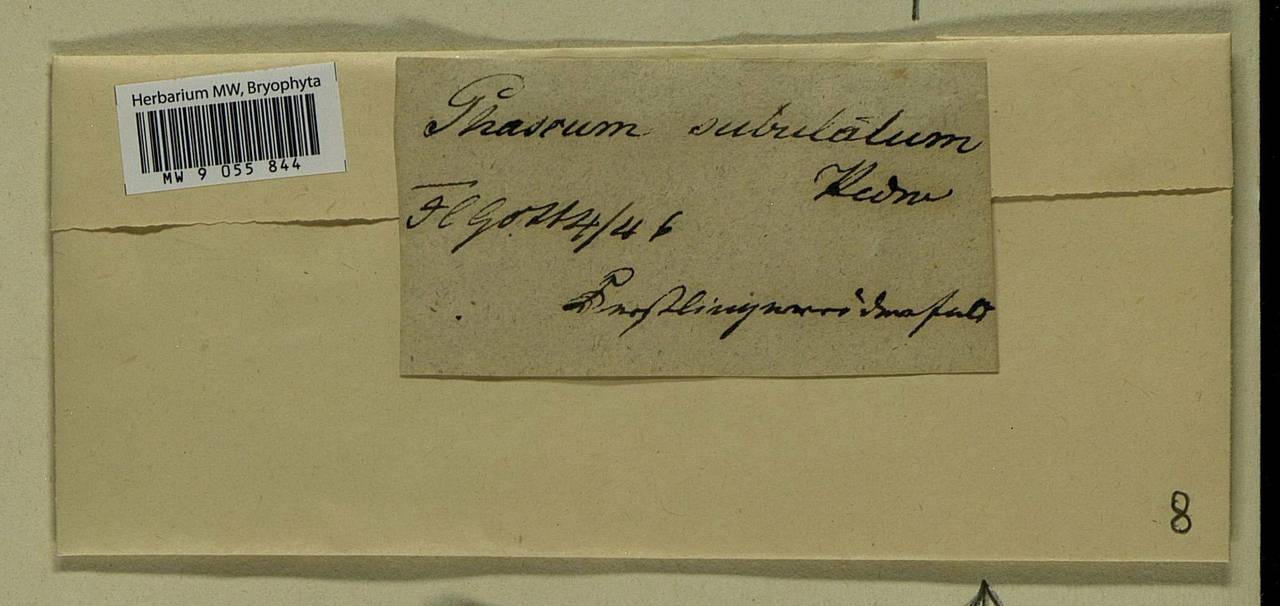 Herbarium MW, Bryophyta
MW 9 055 844
Phascum subulatum
Hedw
Fl Gött 4/46
8